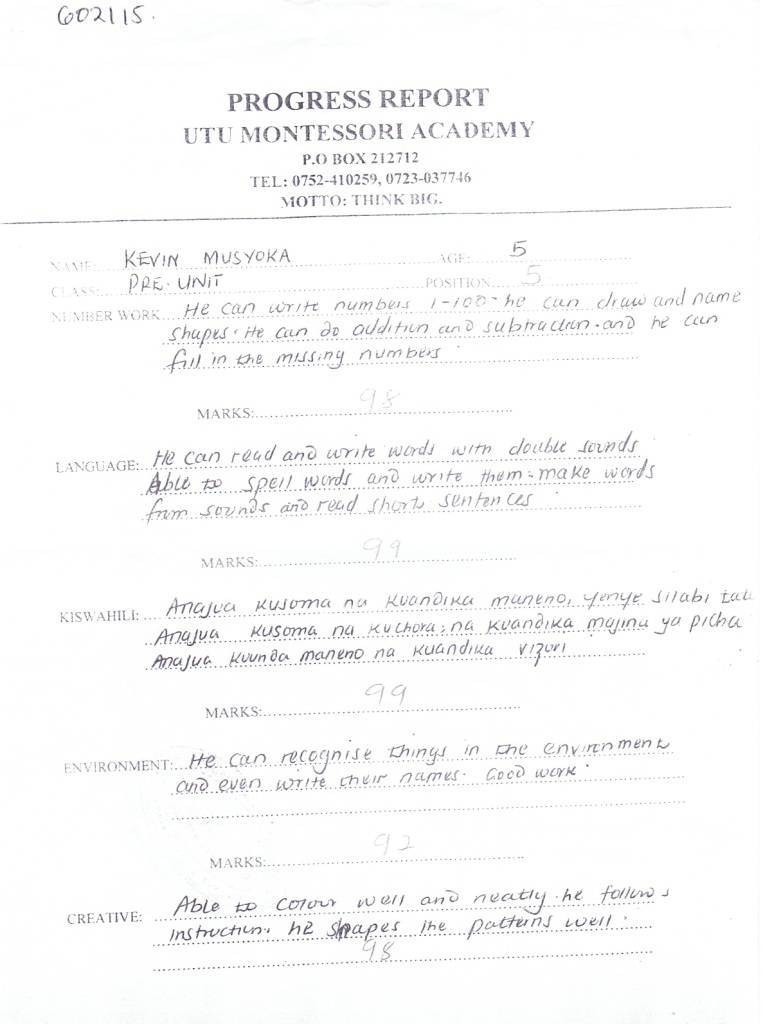 602115.
PROGRESS REPORT
UTU MONTESSORI ACADEMY
P.O BOX 212712
TEL: 0752-410259, 0723-037746
MOTTO: THINK BIG.
NAME: KEVIN MUSYOKA AGE: 5
CLASS: PRE-UNIT POSITION 5
NUMBER WORK He can write numbers 1-100- he can draw and name
shapes. He can do addition and subtraction. and he can
fill in the missing numbers
MARKS: 98
LANGUAGE: He can read and write words with double sounds
Able to spell words and write them - make words
from sounds and read short sentences
MARKS: 99
KISWAHILI: Anajua kusoma na kuandika maneno, yenye silabi tatu
Anajua kusoma na kuchora, na kuandika majina ya picha
Anajua kuunda maneno na kuandika vizuri
MARKS: 99
ENVIRONMENT: He can recognise things in the environment
and even write their names. Good work.
MARKS: 92
CREATIVE: Able to colour well and neatly. he follows
instruction. he shapes the patterns well.
98